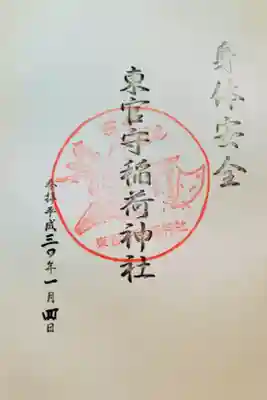 身体安全
東官守稲荷神社
参拝平成三〇年一月四日